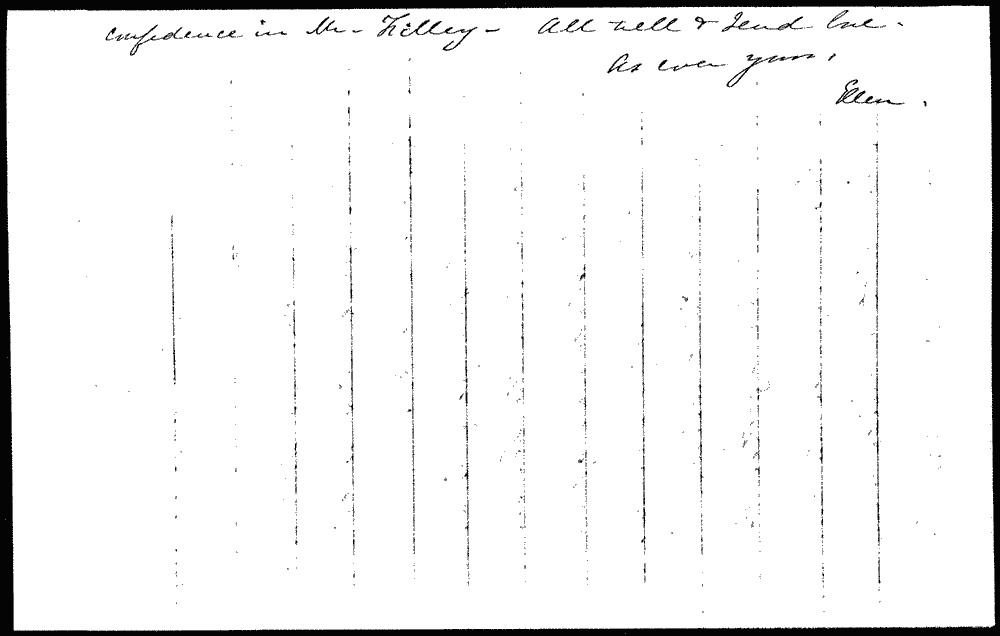 confidence in Mr - Kelley - All well & send love -
As ever yours,
Ellen.